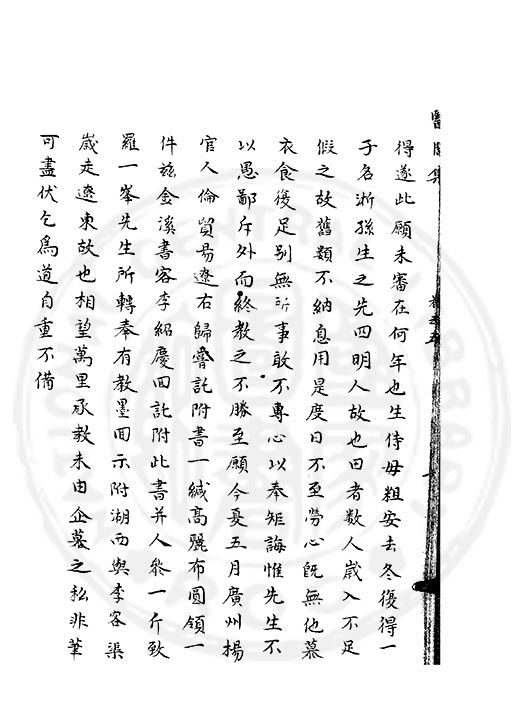 醫閭集
得遂此願未審在何年也生侍母粗安去冬復得一
子名浙孫生之先四明人故也田者数人歳入不足
假之故舊類不納息用是度日不至勞心既無他慕
衣食後足别無所事敢不專心以奉矩誨惟先生不
以愚鄙斥外而終教之不勝至願今夏五月廣州揚
官人倫貿易遼右歸嘗託附書一緘高麗布圓領一
件兹金溪書客李紹慶回託附此書并人參一斤致
羅一峯先生所轉奉有教墨回示附湖西與李客渠
歳走遼東故也相望萬里承教未由企慕之私非筆
可盡伏乞爲道自重不備